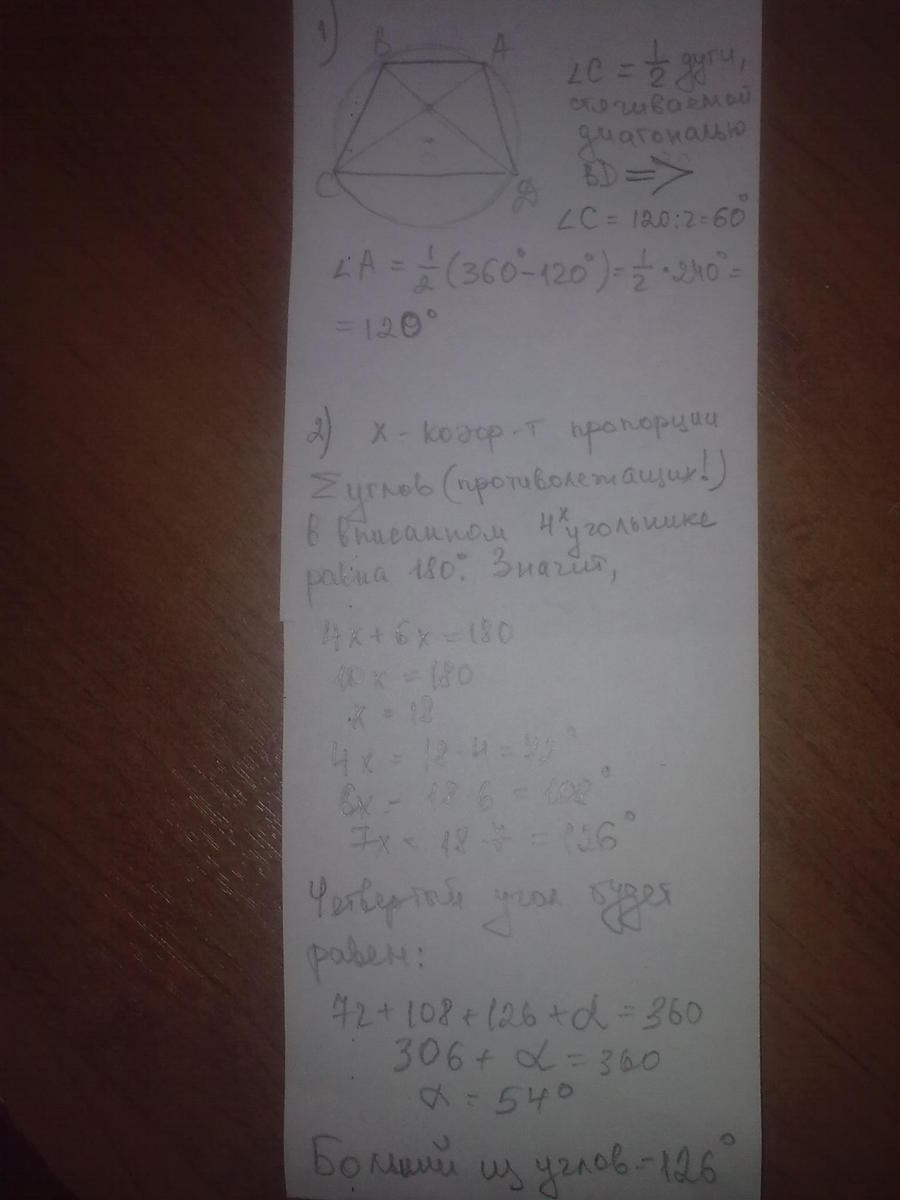 1)
B A
C D
∠C = 1/2 дуги,
стягиваемой
диагональю
BD =>
∠C = 120:2=60°
∠A = 1/2 (360°-120°) = 1/2 · 240° =
= 120°
2) x - коэф-т пропорции
Σ углов (противолежащих!)
в вписанном 4хугольнике
равна 180°. Значит,
4x + 6x = 180
10x = 180
x = 18
4x = 18·4 = 72°
6x = 18·6 = 108°
7x = 18·7 = 126°
Четвертый угол будет
равен:
72+108+126+α=360
306+α=360
α=54°
Больший из углов=126°